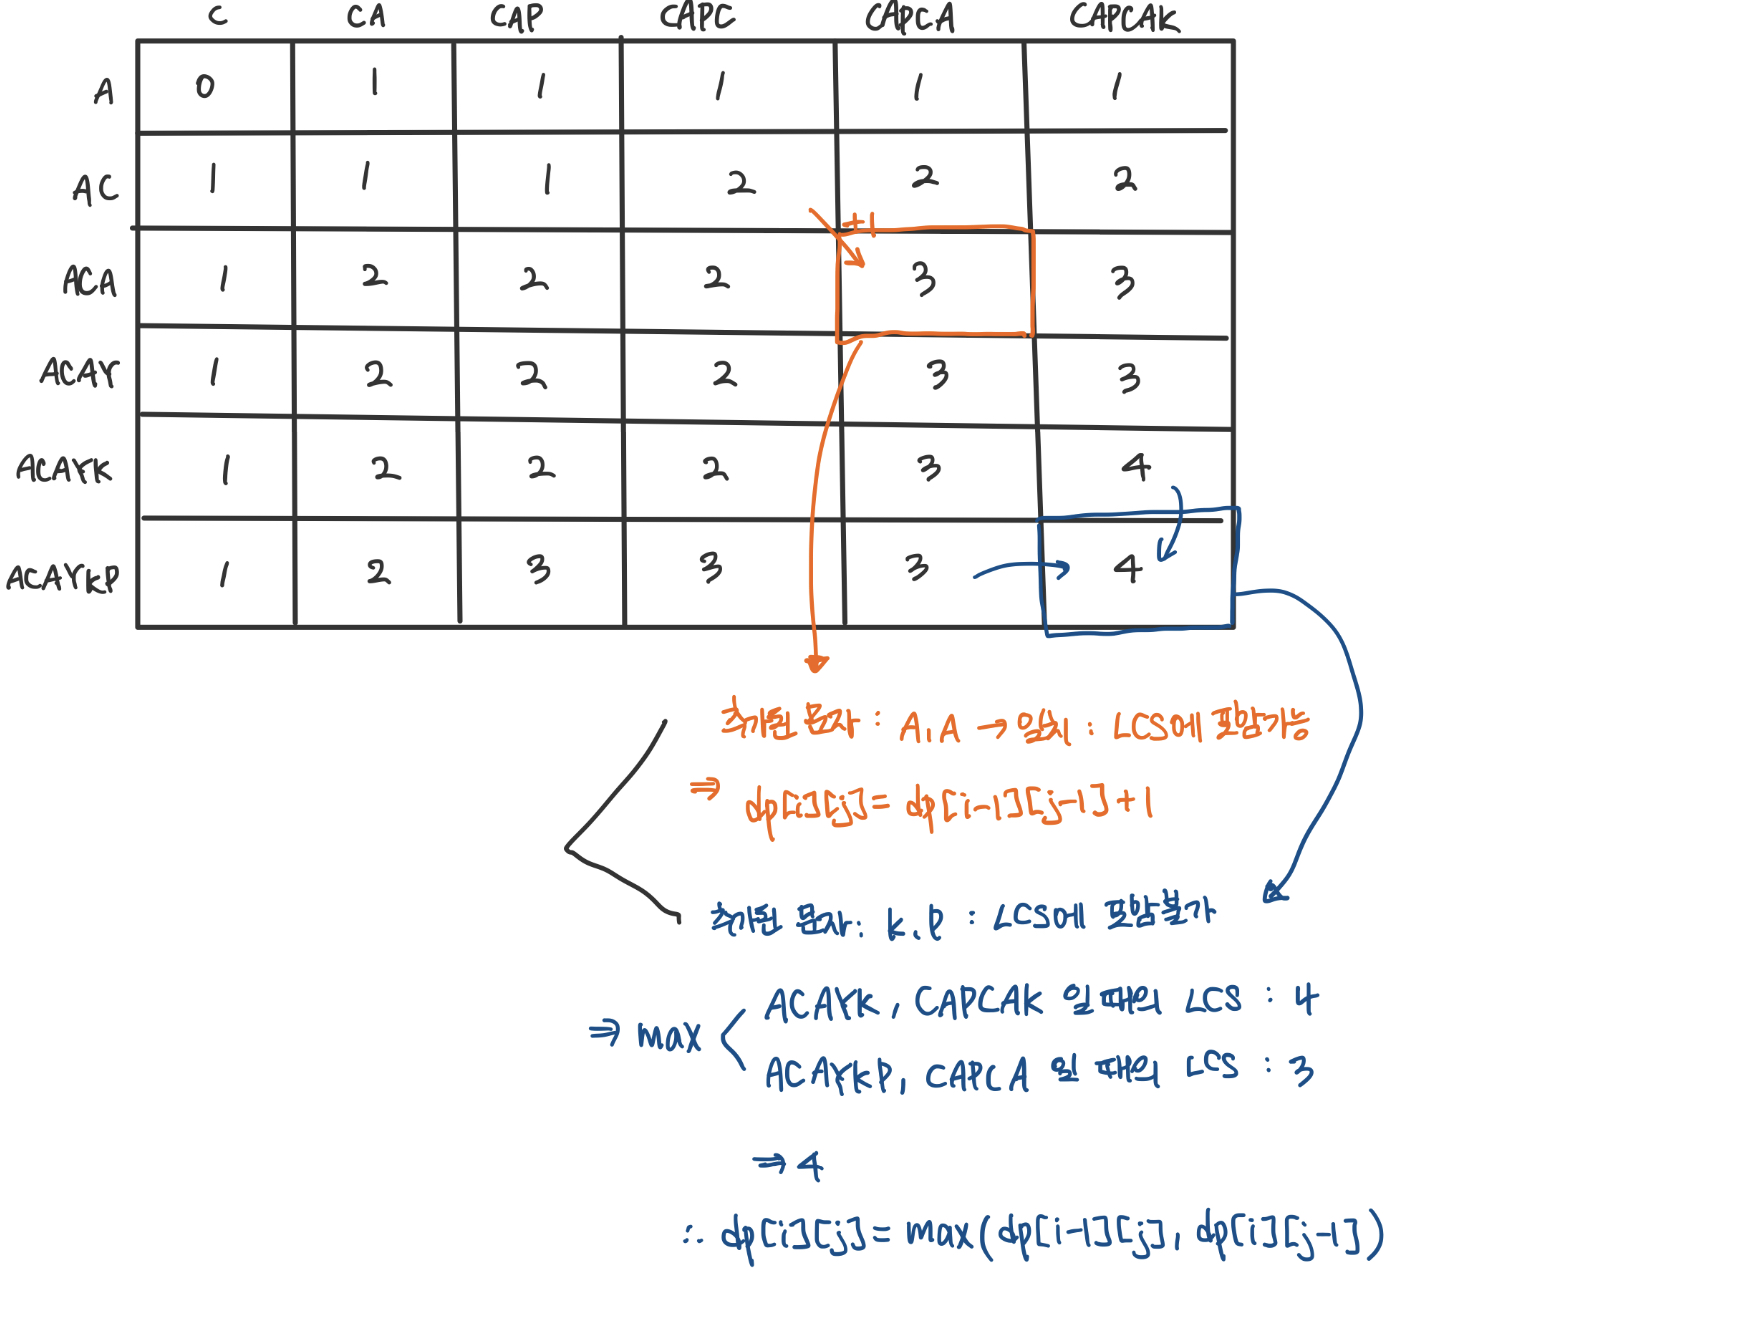 C CA CAP CAPC CAPCA CAPCAK
A 0 1 1 1 1 1
AC 1 1 1 2 2 2
+1
ACA 1 2 2 2 3 3
ACAY 1 2 2 2 3 3
ACAYK 1 2 2 2 3 4
ACAYKP 1 2 3 3 3 4
추가된 문자 : A, A → 일치 : LCS에 포함가능
⇒ dp[i][j] = dp[i-1][j-1] + 1
추가된 문자 : K, P : LCS에 포함불가
⇒ max < ACAYK, CAPCAK 일 때의 LCS : 4
ACAYKP, CAPCA 일 때의 LCS : 3
⇒ 4
∴ dp[i][j] = max(dp[i-1][j], dp[i][j-1])